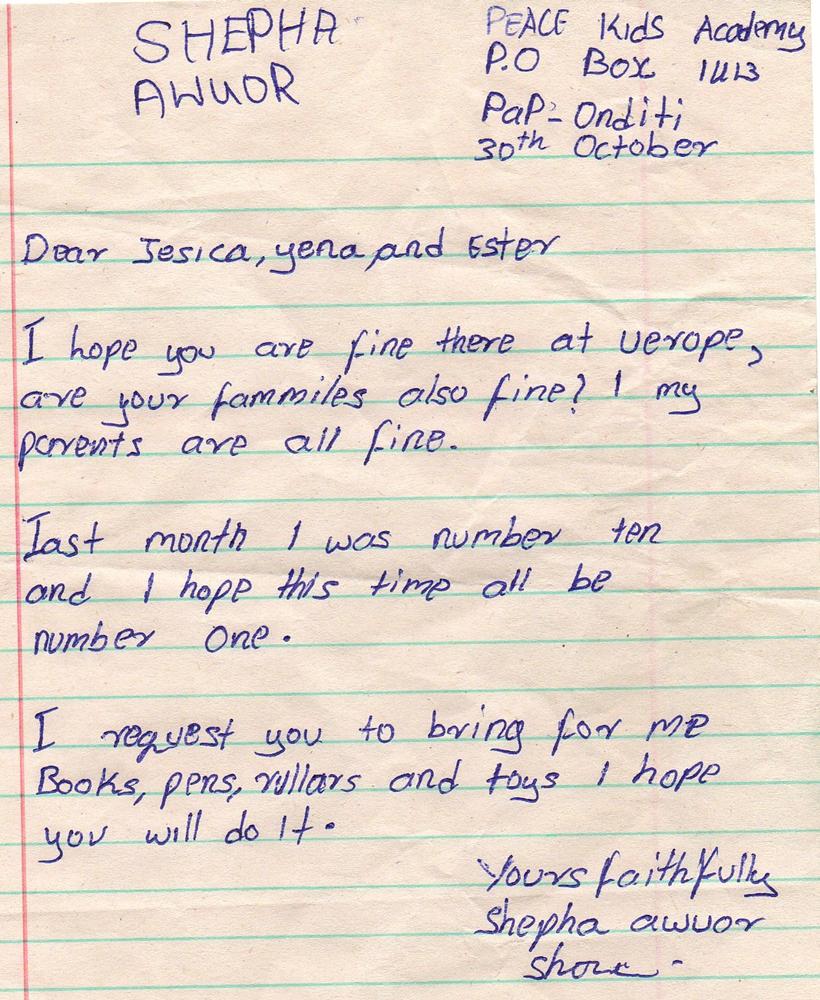 SHEPHA
AWUOR
PEACE Kids Academy
P.O Box
Pap-Onditi
30th October
Dear Jesica, yena, and Ester
I hope you are fine there at uerope,
are your fammiles also fine? I my
parents are all fine.
Last month I was number ten
and I hope this time all be
number One.
I request you to bring for me
Books, pens, rullars and toys I hope
you will do It.
Yours faithfully
Shepha awuor